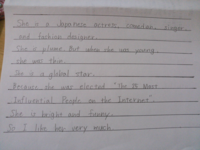 She is a Japanese actress, comedian, singer,
and fashion designer.
She is plump. But when she was young,
she was thin.
She is a global star.
Besides she was elected "The 25 Most
Influential People on the Internet".
She is bright and funny.
So I like her very much.